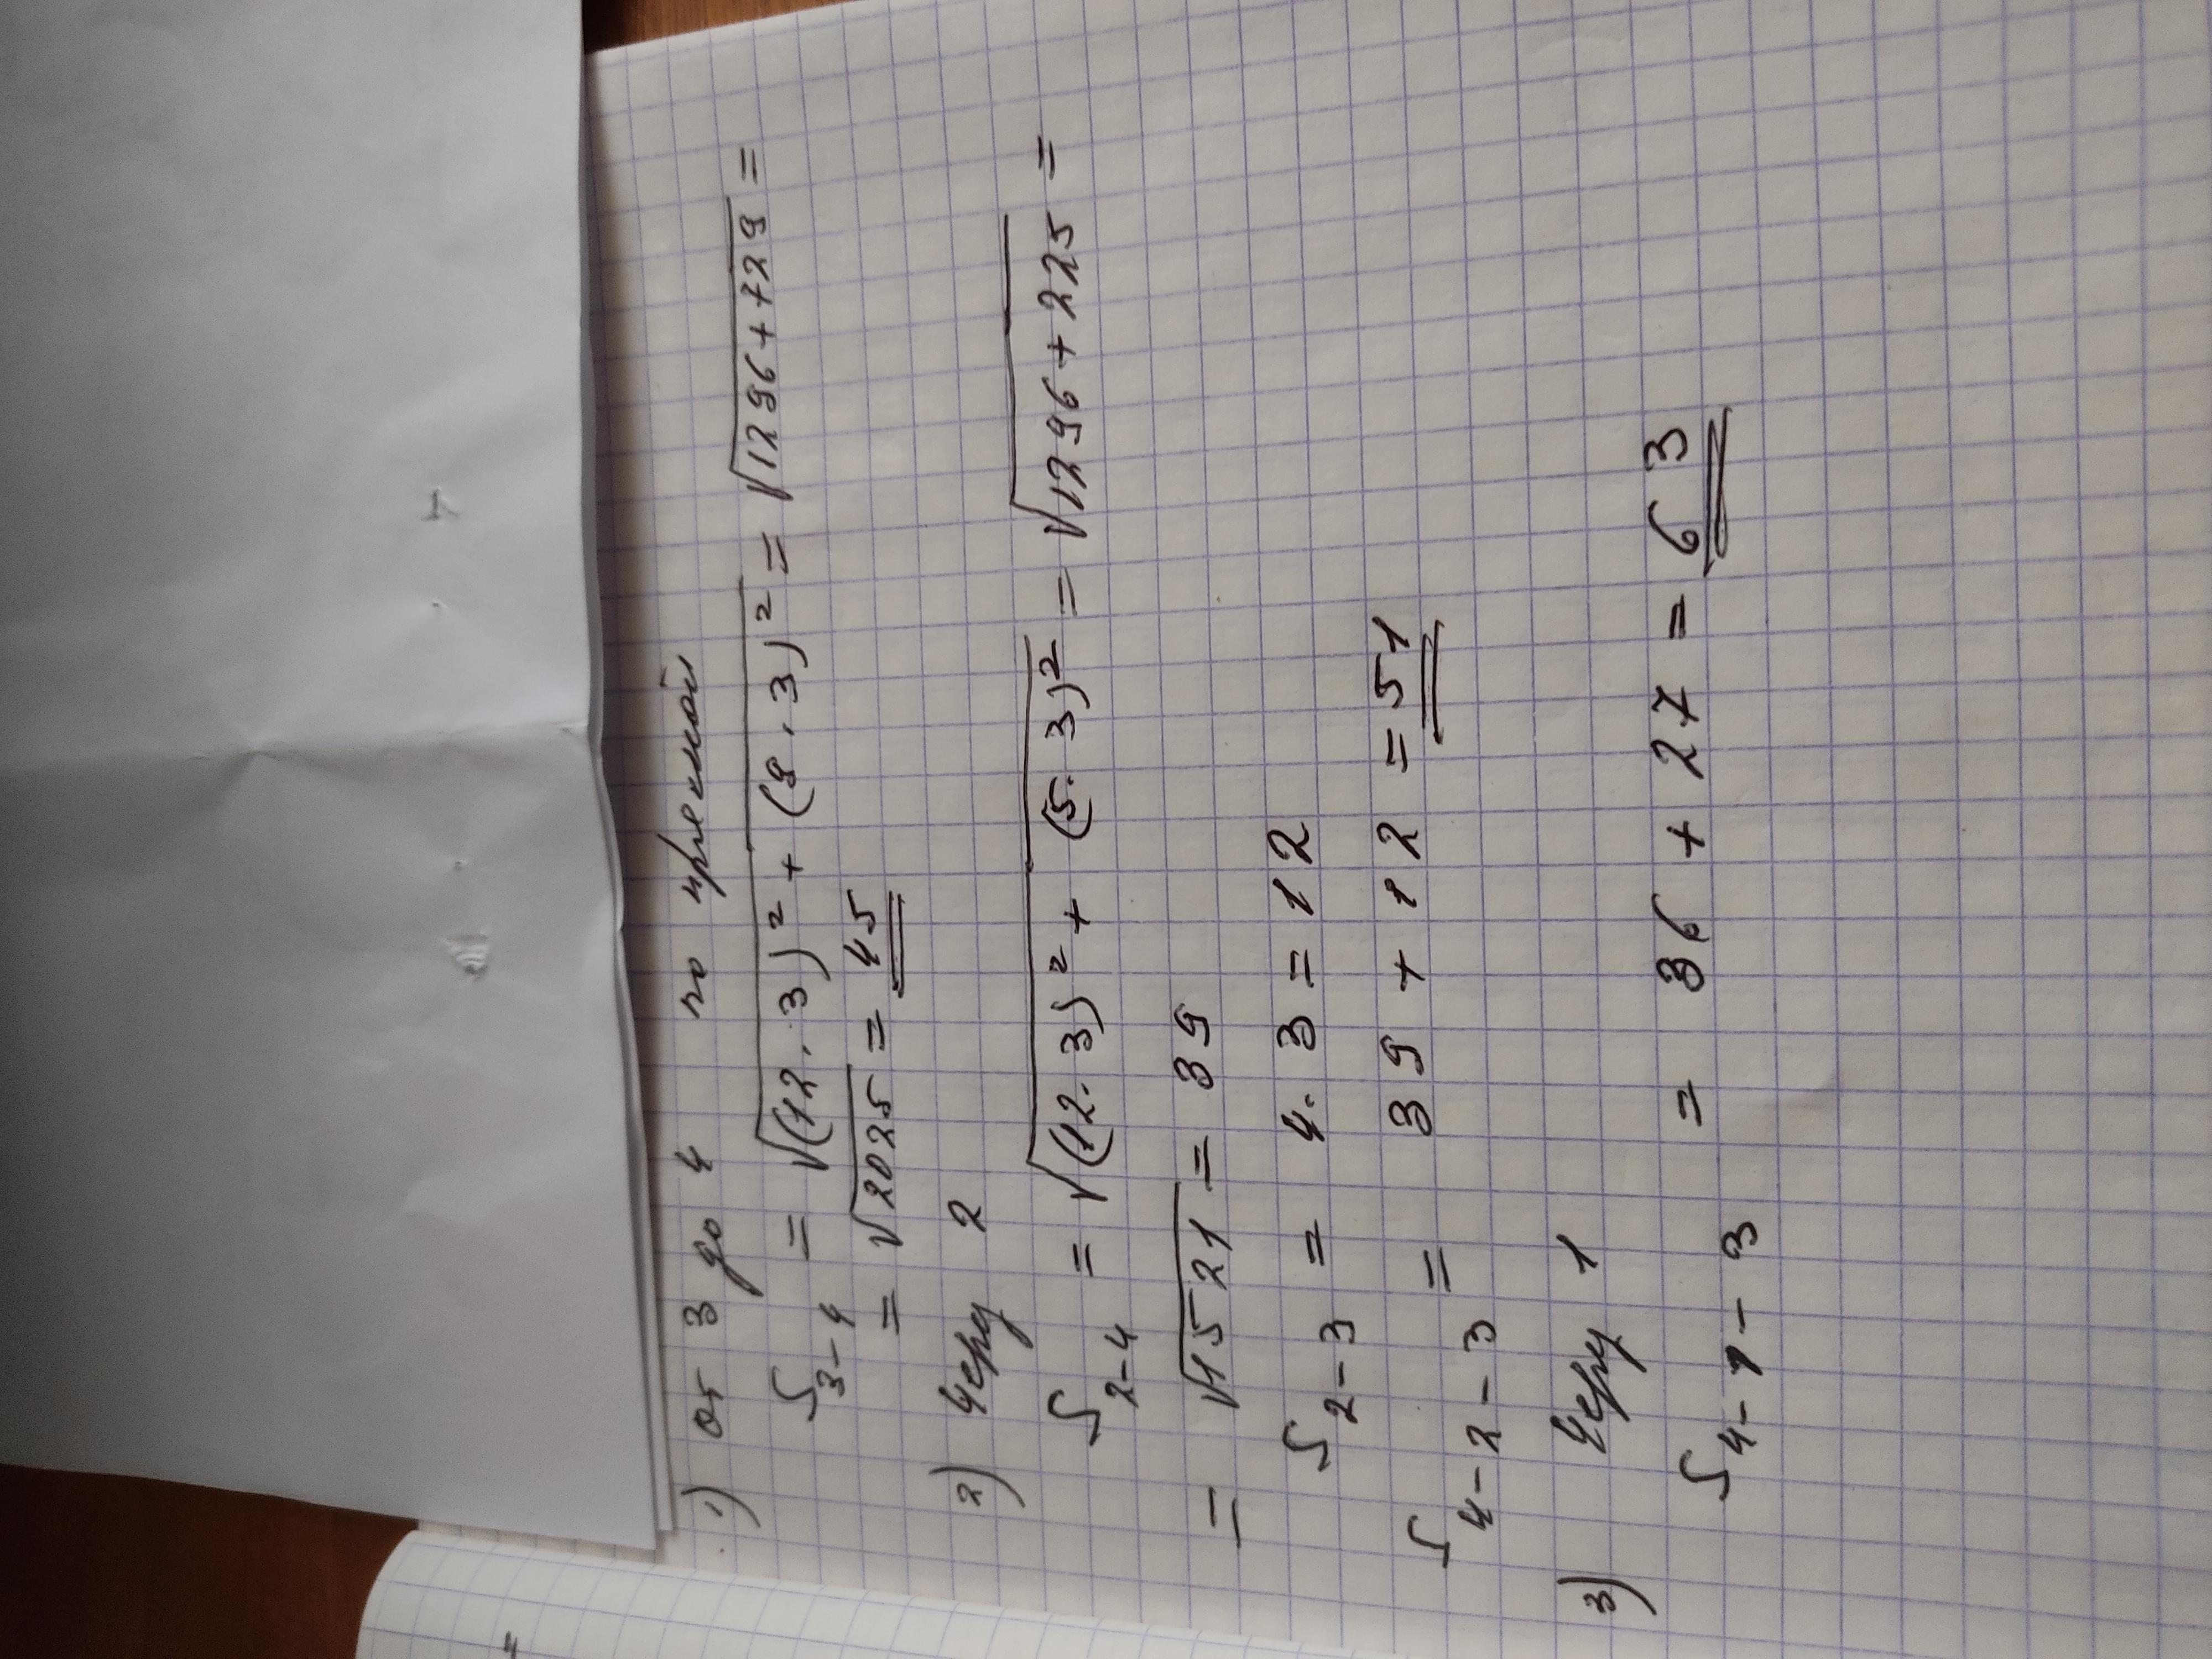 1) от 3 до 4 по прямой
S3-4 = √(12·3)² + (9·3)² = √1296+729 =
= √2025 = 45
2) Через 2
S2-4 = √(12·3)² + (5·3)² = √1296+225 =
= √1521 = 39
S2-3 = 4·3 = 12
S4-2-3 = 39 + 12 = 51
3) Через 1
S4-1-3 = 36 + 27 = 63